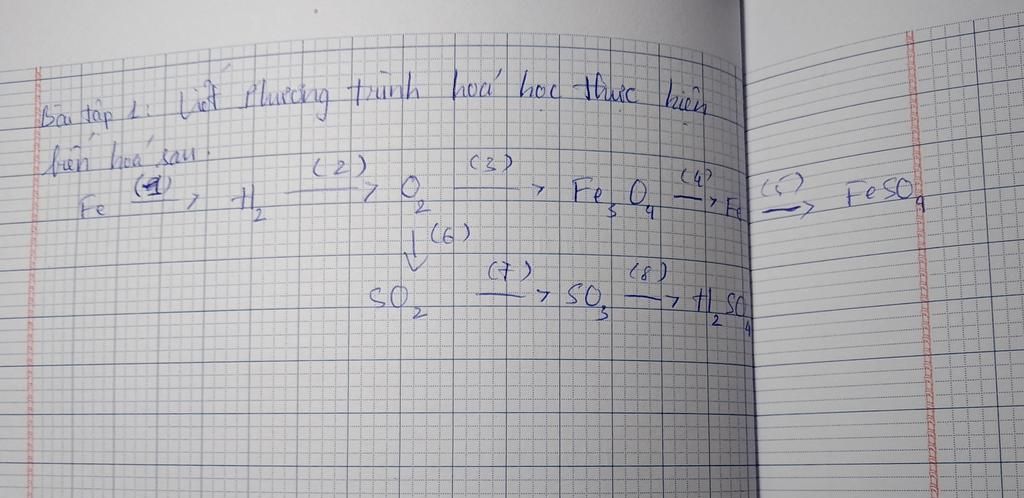 Bài tập 1: Viết Phương trình hoá học thực hiện
biến hoá sau.
Fe (1)→ H₂ (2)→ O₂ (3)→ Fe₃O₄ (4)→ Fe (5)→ FeSO₄
↓ (6)
SO₂ (7)→ SO₃ (8)→ H₂SO₄